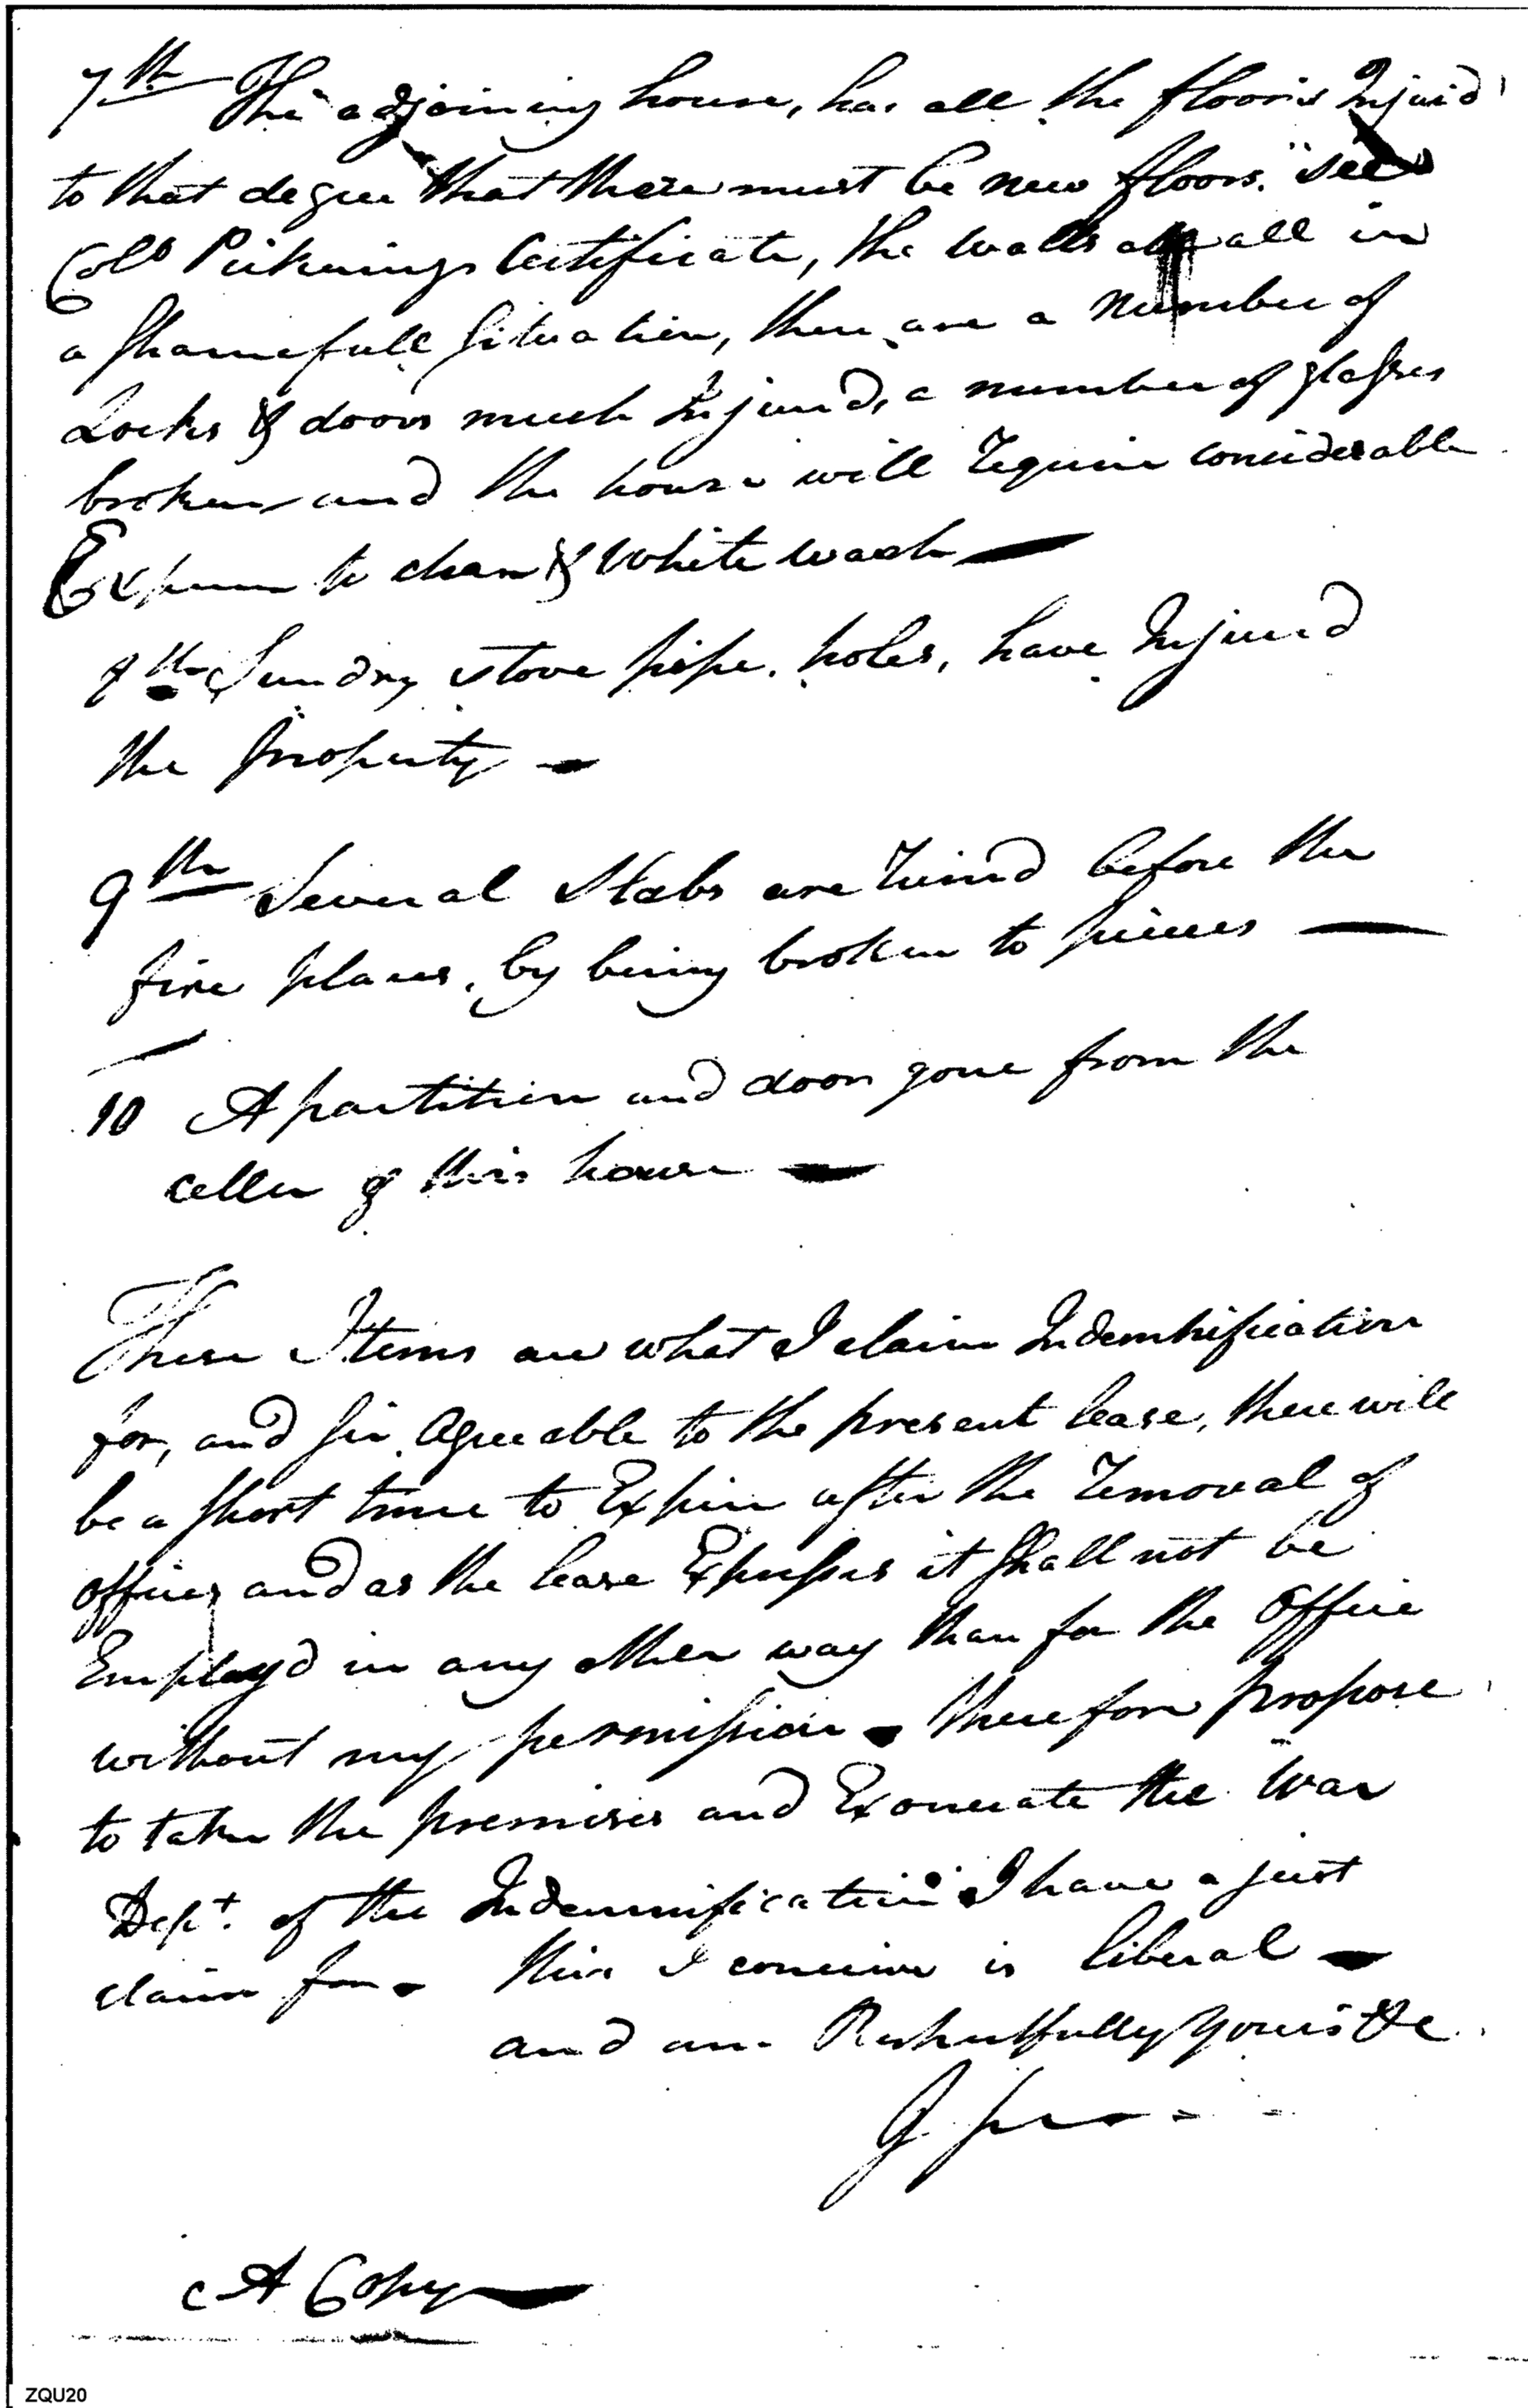 7th The adjoining house, has all the floors Injurd
to that degree that there must be new floors. see
Colo Pickerings Certificate, the walls all in
a shamefull situation, there are a number of
Locks & doors much Injurd, a number of glasses
broken and the house will require considerable
Expence to clean & White wash —
8th Sundry stove pipe holes, have Injured
the property —
9th Several Slabs are ruind before the
fire places, by being broken to pieces —
10 A partition and door gone from the
celler of this house —
These Items are what I claim Indemnification
for, and sir, Agreeable to the present lease, there will
be a short time to Expire after the removal of
offices and as the lease Expresses it shall not be
Employd in any other way than for the Office
without my permission — therefore propose
to take the premises and Exonerate the War
Dept. of the Indemnification I have a just
claim for — this I conceive is liberal —
and am Respectfully yours &c
A Copy
ZQU20